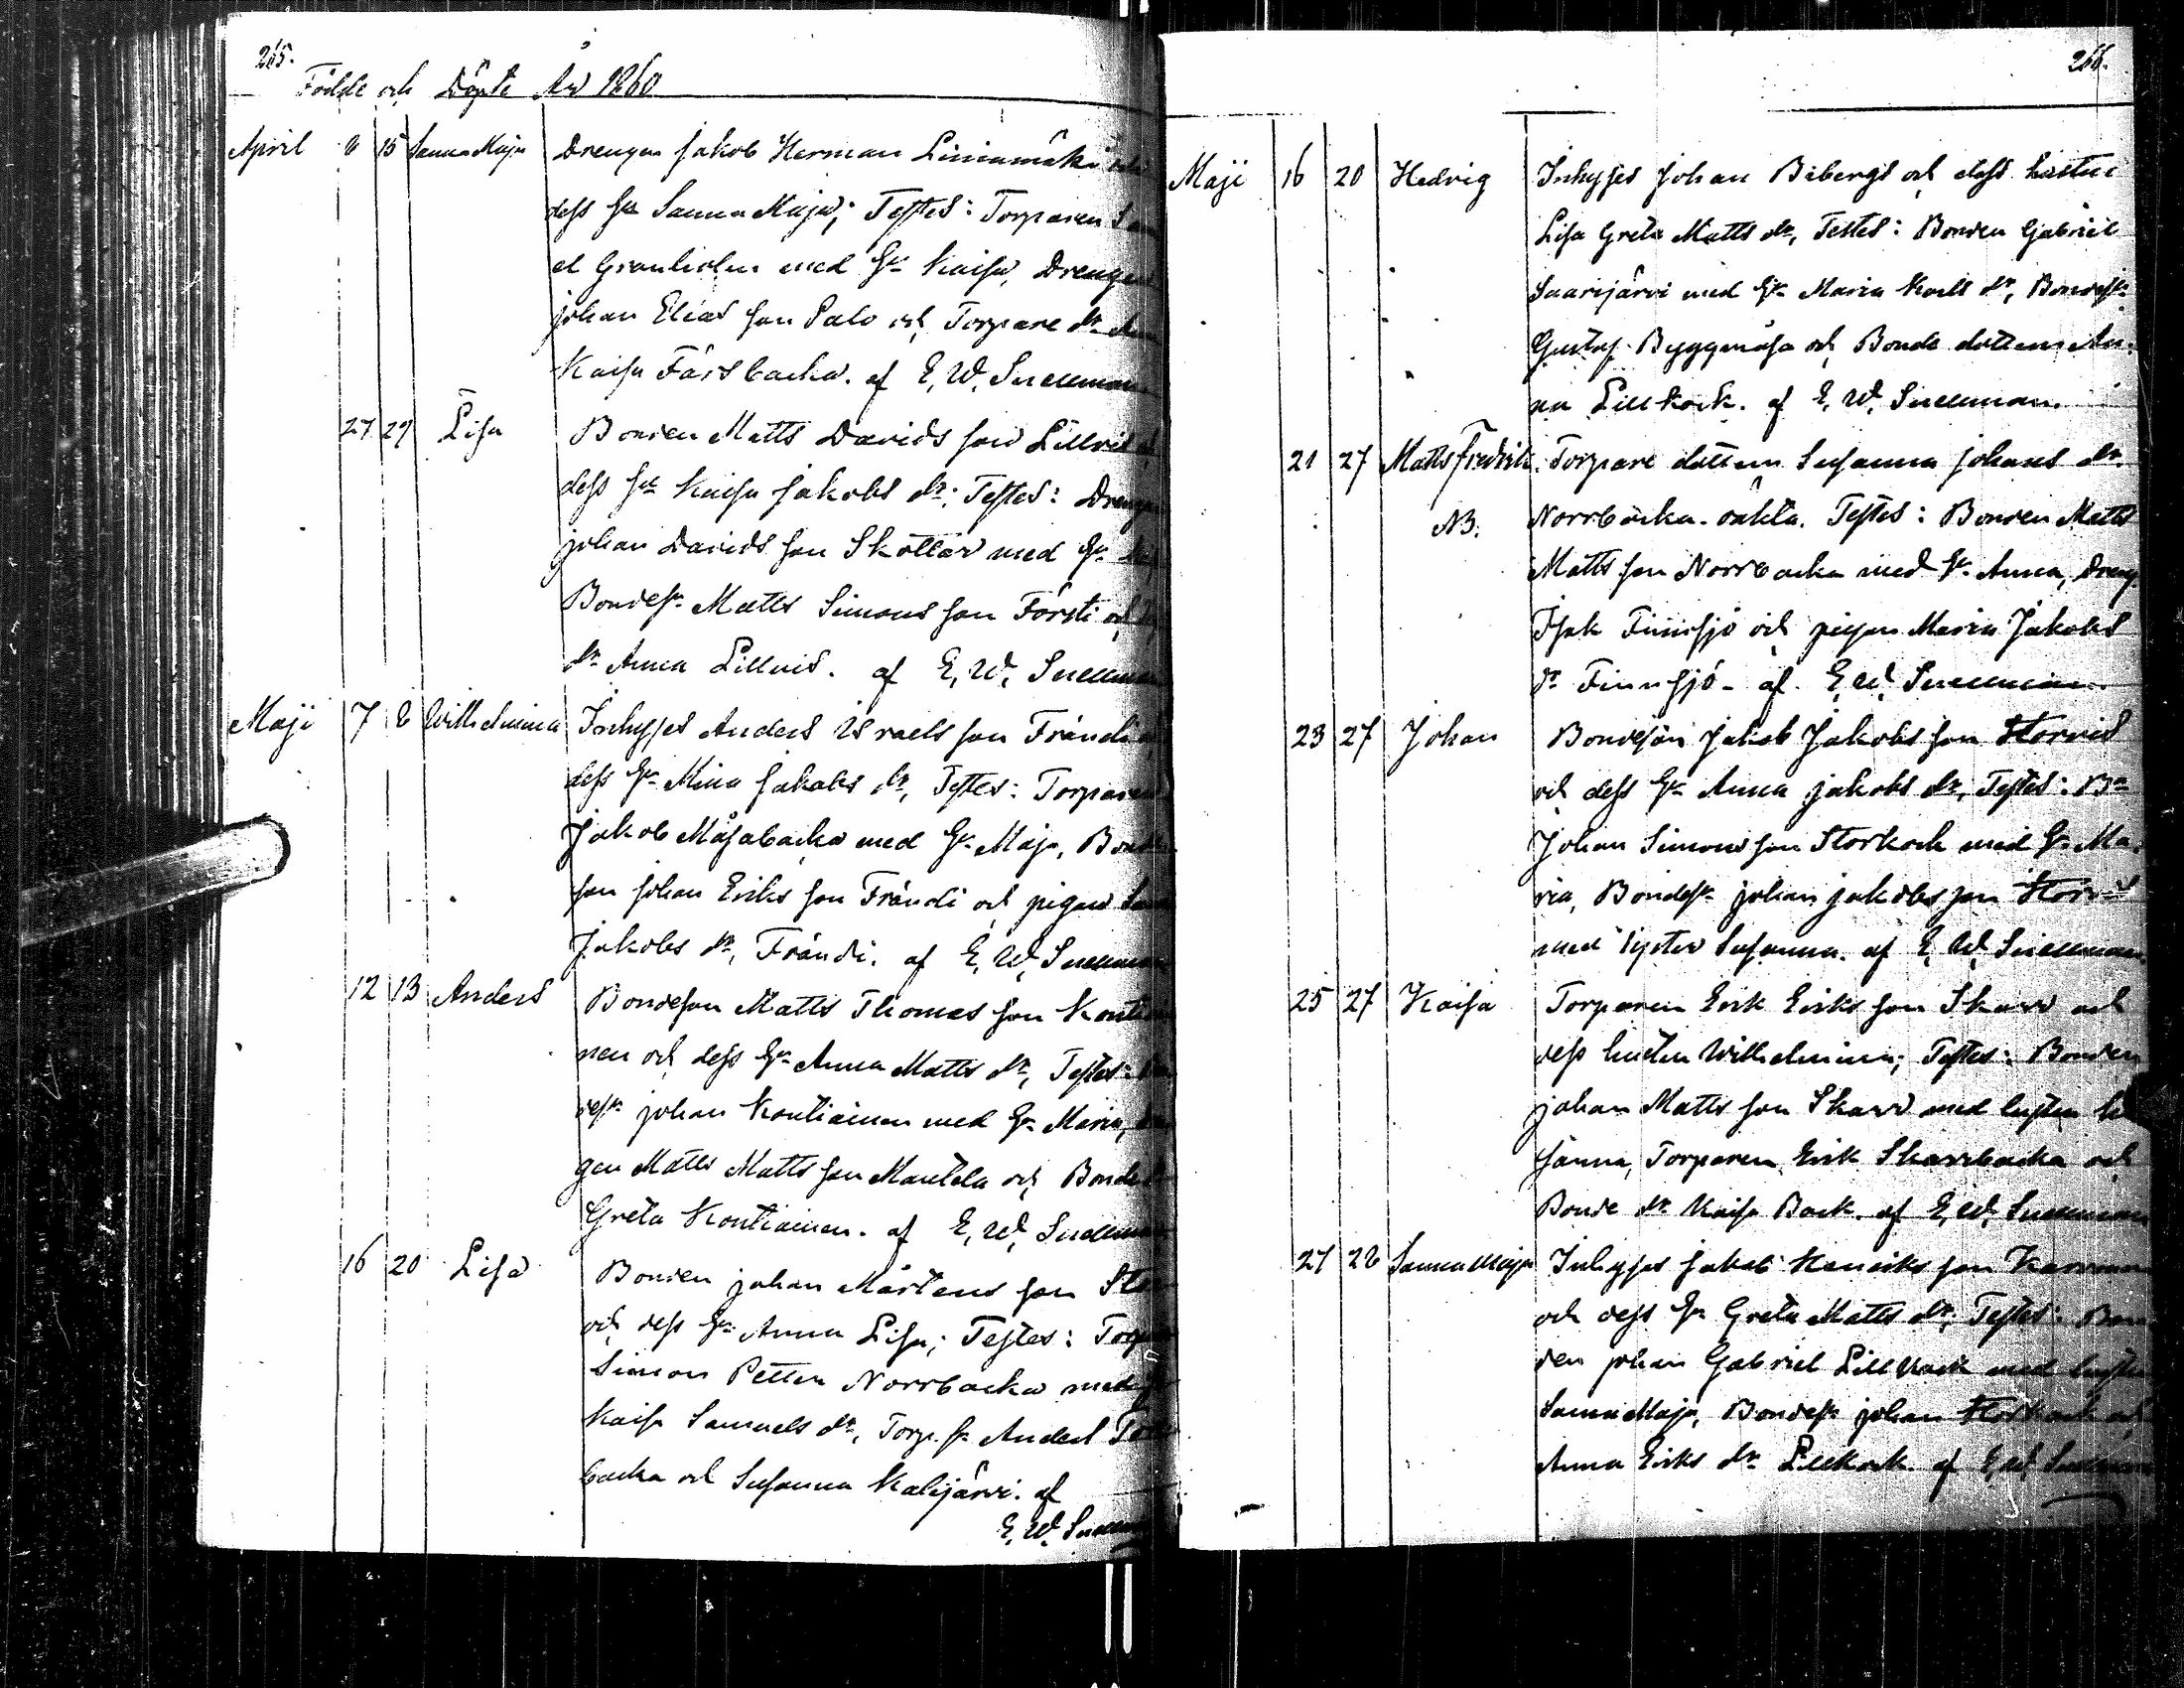 265.
Födde och Döpte År 1860
April 8 15 Sanna Maja Drengen Jakob Herman Liniamäki och
dess hu Sanna Maja; Testes: Torparen Sam
el Granholm med hu Kaisa, Drengen
Johan Elias son Palo och Torpare dr
Kaisa Färsbacka. af E. W. Snellman
27 29 Lisa Bonden Matts Davids son Lillvis
dess hu Kaisa Jakobs dr; Testes: Drengen
Johan Davids son Skottar med hu
Bondess. Matts Simons son Försti och
dr Anna Lillvis. af E. W. Snellman
Maji 7 8 Wilhelmina Inhyses Anders Israels son Frändi
dess hu Mina Jakobs dr, Testes: Torparen
Jakob Måsabacka med hu Maja, Bonde
son Johan Eriks son Frändi och pigan
Jakobs dr, Frändi. af E. W. Snellman
12 13 Anders Bondeson Matts Thomas son Kontiai
nen och dess hu Anna Matts dr, Testes:
dess. Johan Kontiainen med hu Maria,
gen Matts Matts son Mantela och Bonde
Greta Kontiainen. af E. W. Snellman
16 20 Lisa Bonden Johan Mårtens son
och dess hu Anna Lisa; Testes:
Simon Petter Norrbacka med
Kaisa Samuels dr, Torp. s. Anders
backa och Susanna Kalijärvi. af
E. W. Snellman
266.
Maji 16 20 Hedvig Inhyses Johan Bibergs och dess hustru
Lisa Greta Matts dr, Testes: Bonden Gabriel
Saarijärvi med hu Maria Karls dr, Bondess.
Gustaf Byggmäsa och Bonde dottern An
na Lillkock. af E. W. Snellman.
21 27 Matts Fredrik. Torpare dottern Susanna Johans dr
NB. Norrbacka. oäkta. Testes: Bonden Matts
Matts son Norrbacka med hu Anna, Dreng.
Isak Finnsjö och pigan Maria Jakobs
dr Finnsjö. af E. W. Snellman
23 27 Johan Bondeson Jakob Jakobs son Storvis
och dess hu Anna Jakobs dr, Testes: Bn
Johan Simons son Storkock med hu Ma
ria, Bondess. Johan Jakobs son Storvis
med syster Susanna. af E. W. Snellman
25 27 Kaisa Torparen Erik Eriks son Skarv och
dess hustru Wilhelmina; Testes: Bonden
Johan Matts son Skarv med hustru
sanna, Torparen Erik Skarvbacka och
Bonde dr Kaisa Back. af E. W. Snellman
27 28 Sanna Maja Inhyses Jakob Henriks son
och dess hu Greta Matts dr; Testes: Bon
den Johan Gabriel Lillkock med hustru
Sanna Maja, Bondess. Johan Storkock och
Anna Eriks dr Lillkock. af E. W. Snellman